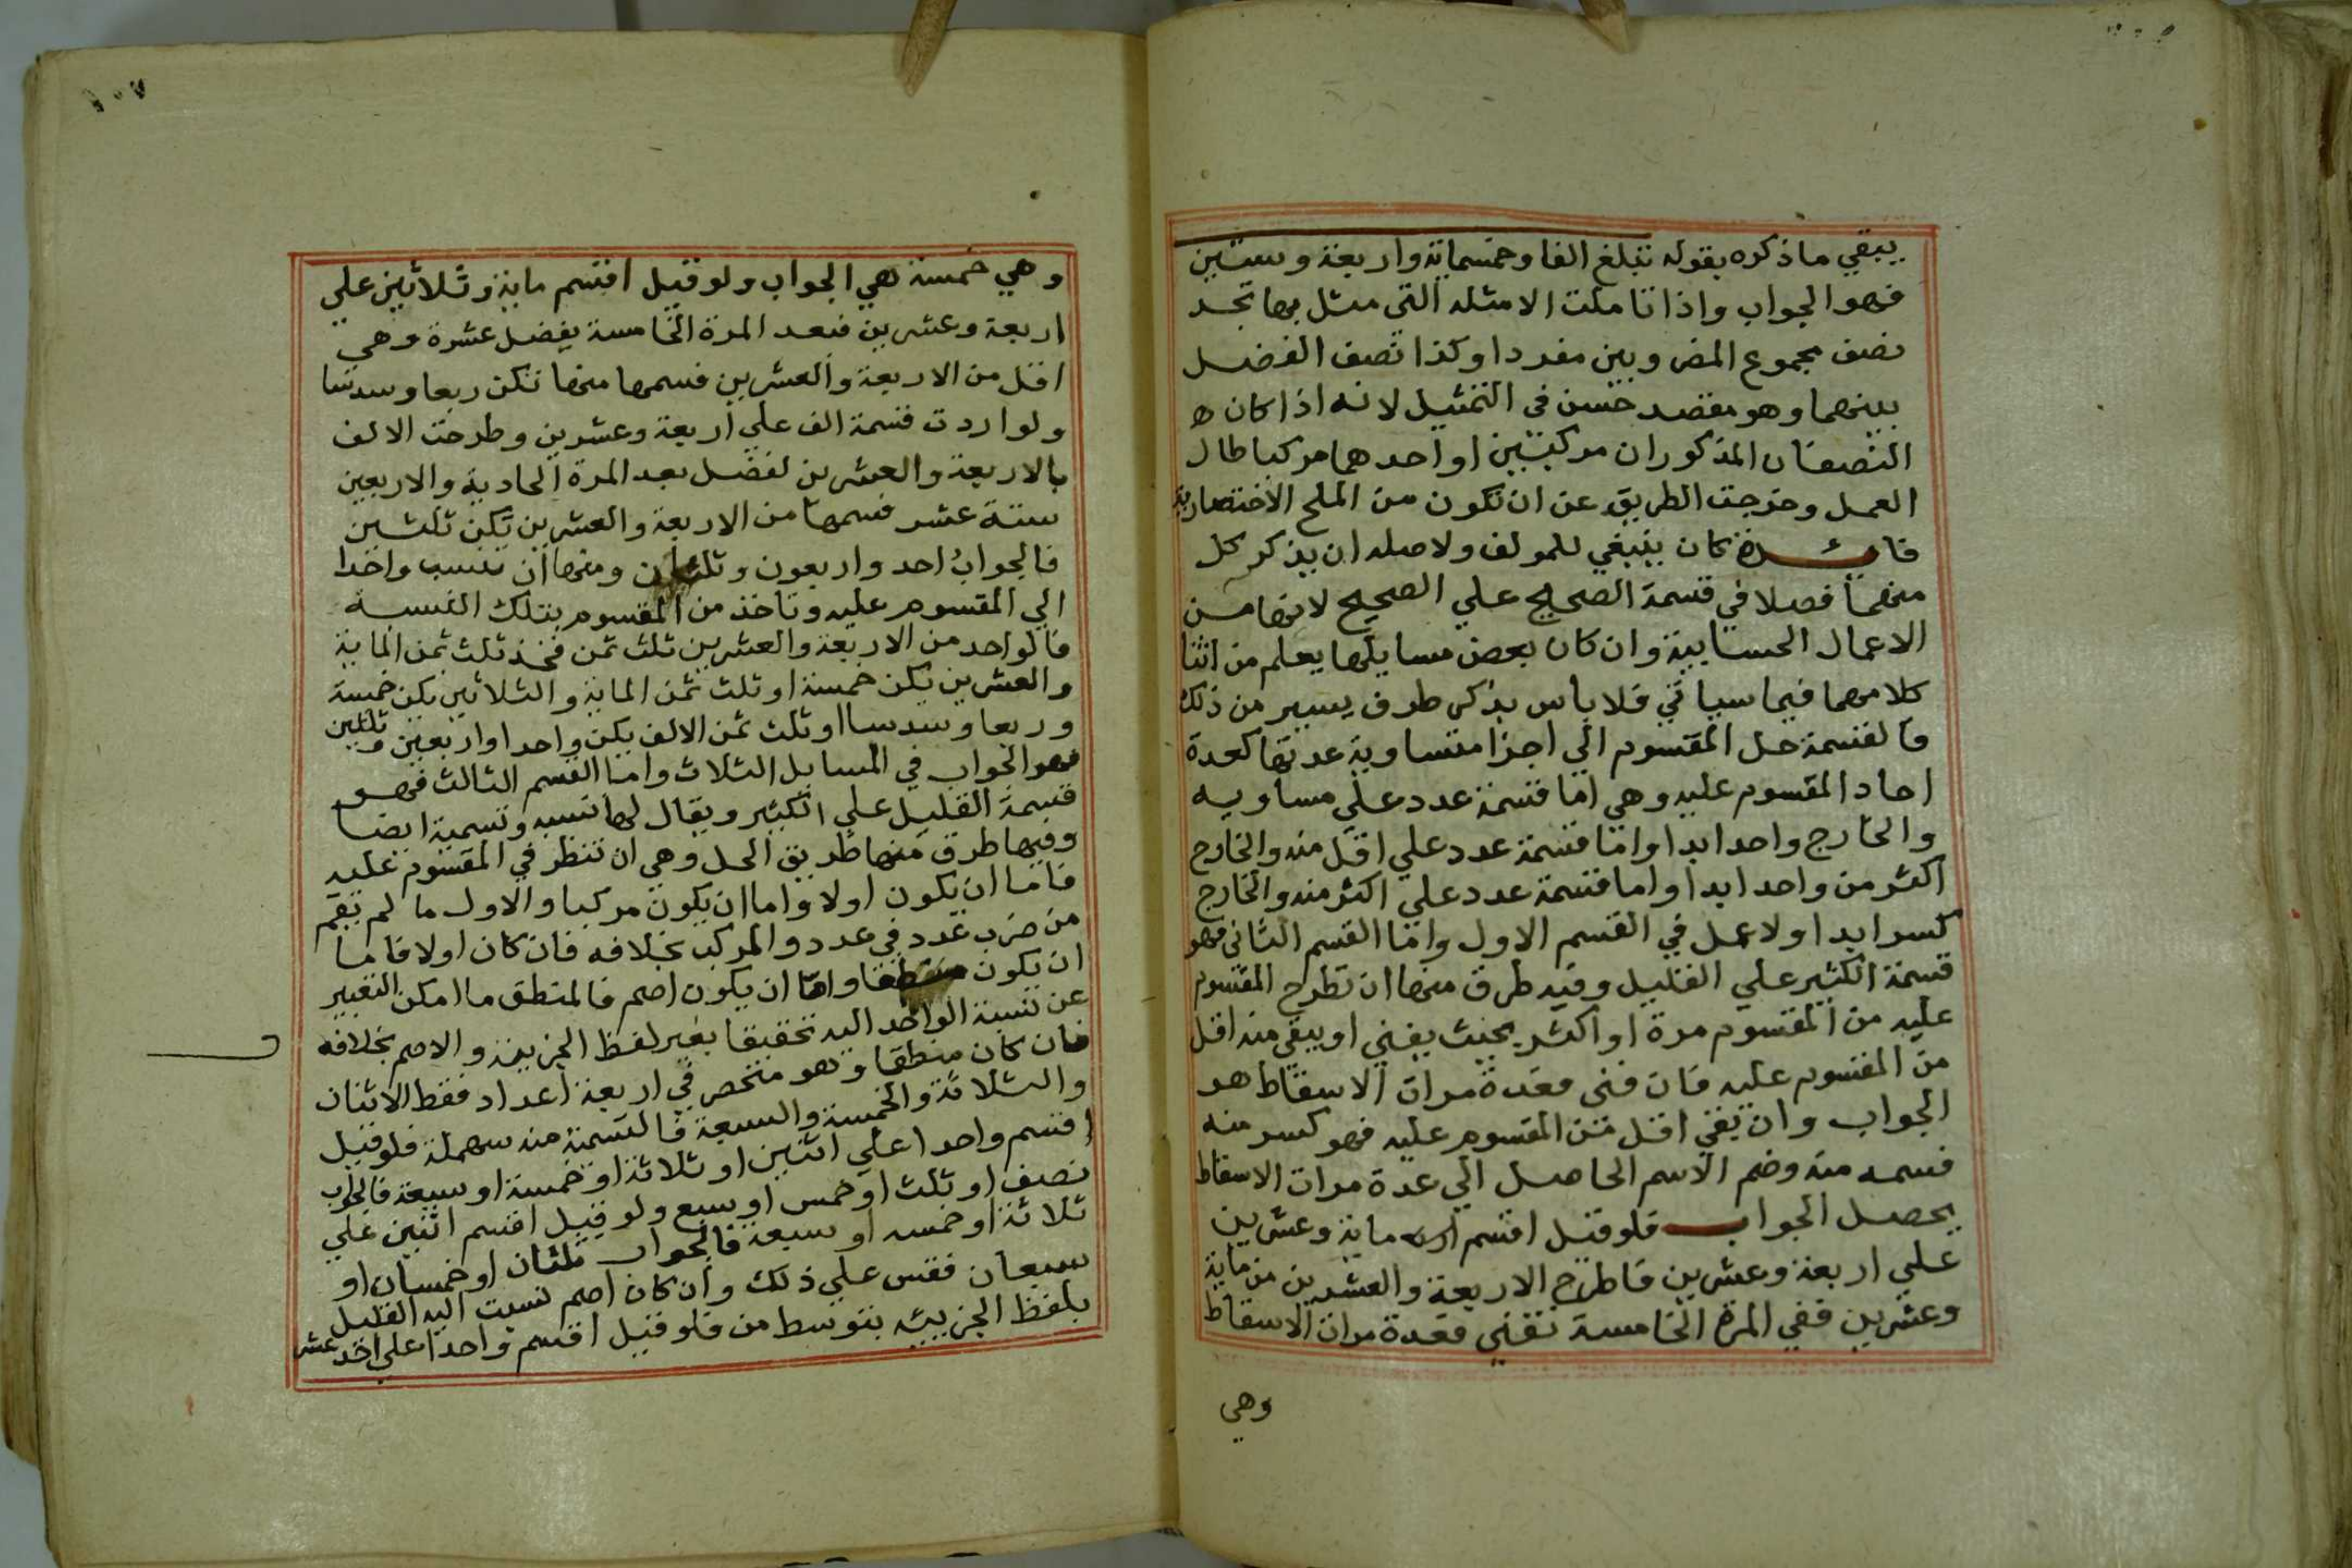 يبقي ماذكره بقوله تبلغ الفا وخمسماية واربعة وستين
فهو الجواب واذا تاملت الامثله التى مثل بها تجد
نصف مجموع المضروبين مفردا وكذا نصف الفضل
بينهما وهو مقصد حسن فى التمثيل لانه اذا كان
النصفان المذكوران مركبيين او احدهما مركبا طال
العمل وخرجت الطريق عن ان تكون من الملح الاختصارية
فائدة كان ينبغي للمولف ولاصله ان يذكر كل
منهما فصلا في قسمة الصحيح علي الصحيح لانها من
الاعمال الحسابية وان كان بعض مسايلها يعلم من اثنا
كلامهما فيما سياتي فلا باس بذكر طرف يسير من ذلك
فالقسمة حل المقسوم الي اجزا متساوية عدتها كعدة
احاد المقسوم عليه وهي اما قسمة عدد علي مساويه
والخارج واحد ابدا واما قسمة عدد علي اقل منه والخارج
اكثر من واحد ابدا واما قسمة عدد علي اكثر منه والخارج
كسر ابدا ولا عمل في القسم الاول واما القسم الثانى فهو
قسمة الكثير علي القليل وفيه طرق منها ان تطرح المقسوم
عليه من المقسوم مرة او اكثر بحيث يفني او يبقي منه اقل
من المقسوم عليه فان فنى فعدة مرات الاسقاط هو
الجواب وان بقي اقل من المقسوم عليه فهو كسر منه
فسمه منه وضم الاسم الحاصل الي عدة مرات الاسقاط
يحصل الجواب فلو قيل اقسم ماية وعشرين
علي اربعة وعشرين فاطرح الاربعة والعشرين من ماية
وعشرين ففي المرة الخامسة تفني فعدة مرات الاسقاط
وهي
وهي خمسة هي الجواب ولو قيل اقسم ماية وثلاثين علي
اربعة وعشرين فبعد المرة الخامسة يفضل عشرة وهي
اقل من الاربعة والعشرين فسمها منها تكن ربعا وسدسا
ولو اردت قسمة الف علي اربعة وعشرين وطرحت الالف
بالاربعة والعشرين لفضل بعد المرة الحادية والاربعين
ستة عشر فسمها من الاربعة والعشرين تكن ثلثين
فالجواب احد واربعون وثلثان ومنها ان تنسب واحدا
الي المقسوم عليه وتاخذ من المقسوم بتلك النسبة
فالواحد من الاربعة والعشرين ثلث ثمن فخذ ثلث ثمن الماية
والعشرين يكن خمسة او ثلث ثمن الماية والثلاثين يكن خمسة
وربعا وسدسا او ثلث ثمن الالف يكن واحدا واربعين وثلثين
فهو الجواب في المسايل الثلاث واما القسم الثالث فهو
قسمة القليل علي الكثير ويقال لها نسبه وتسمية ايضا
وفيها طرق منها طريق الحل وهي ان تنظر في المقسوم عليه
فاما ان يكون اولا واما ان يكون مركبا والاول ما لم يقم
من ضرب عدد في عدد والمركب بخلافه فان كان اولا فاما
ان يكون منطقا واما ان يكون اصم فالمنطق ما امكن التعبير
عن نسبة الواحد اليه تحقيقا بغير لفظ الجزيية والاصم بخلافه
فان كان منطقا وهو منحصر في اربعة اعداد فقط الاثنان
والثلاثة والخمسة والسبعة فالتسمية منه سهملة فلو قيل
اقسم واحدا علي اثنين او ثلاثة او خمسة او سبعة فالجواب
نصف او ثلث او خمس او سبع ولو قيل اقسم اثنين علي
ثلاثة او خمسه او سبعة فالجواب ثلثان او خمسان او
سبعان فقس علي ذلك وان كان اصم نسبت اليه القليل
بلفظ الجزييه بتوسط من فلو قيل اقسم واحدا علي احد عشر